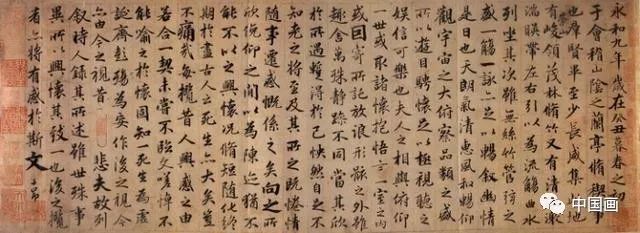 永和九年歲在癸丑暮春之初
于會稽山陰之蘭亭脩稧事
也羣賢畢至少長咸集此地
有崇山峻領茂林脩竹又有清流激
湍暎帶左右引以為流觴曲水
列坐其次雖無絲竹管弦之
盛一觴一詠亦足以暢敘幽情
是日也天朗氣清惠風和暢仰
觀宇宙之大俯察品類之盛
所以遊目騁懷足以極視聽之
娛信可樂也夫人之相與俯仰
一世或取諸懷抱悟言一室之內
或因寄所託放浪形骸之外雖
趣舍萬殊靜躁不同當其欣
於所遇蹔得於己怏然自足不
知老之將至及其所之既惓情
隨事遷感慨係之矣向之所
欣俛仰之閒以為陳迹猶不
能不以之興懷況脩短隨化終
期於盡古人云死生亦大矣豈
不痛哉每攬昔人興感之由
若合一契未嘗不臨文嗟悼不
能喻之於懷固知一死生為虛
誕齊彭殤為妄作後之視今
亦由今之視昔 悲夫故列
敘時人錄其所述雖世殊事
異所以興懷其致一也後之攬
者亦將有感於斯文 子昂
中国画